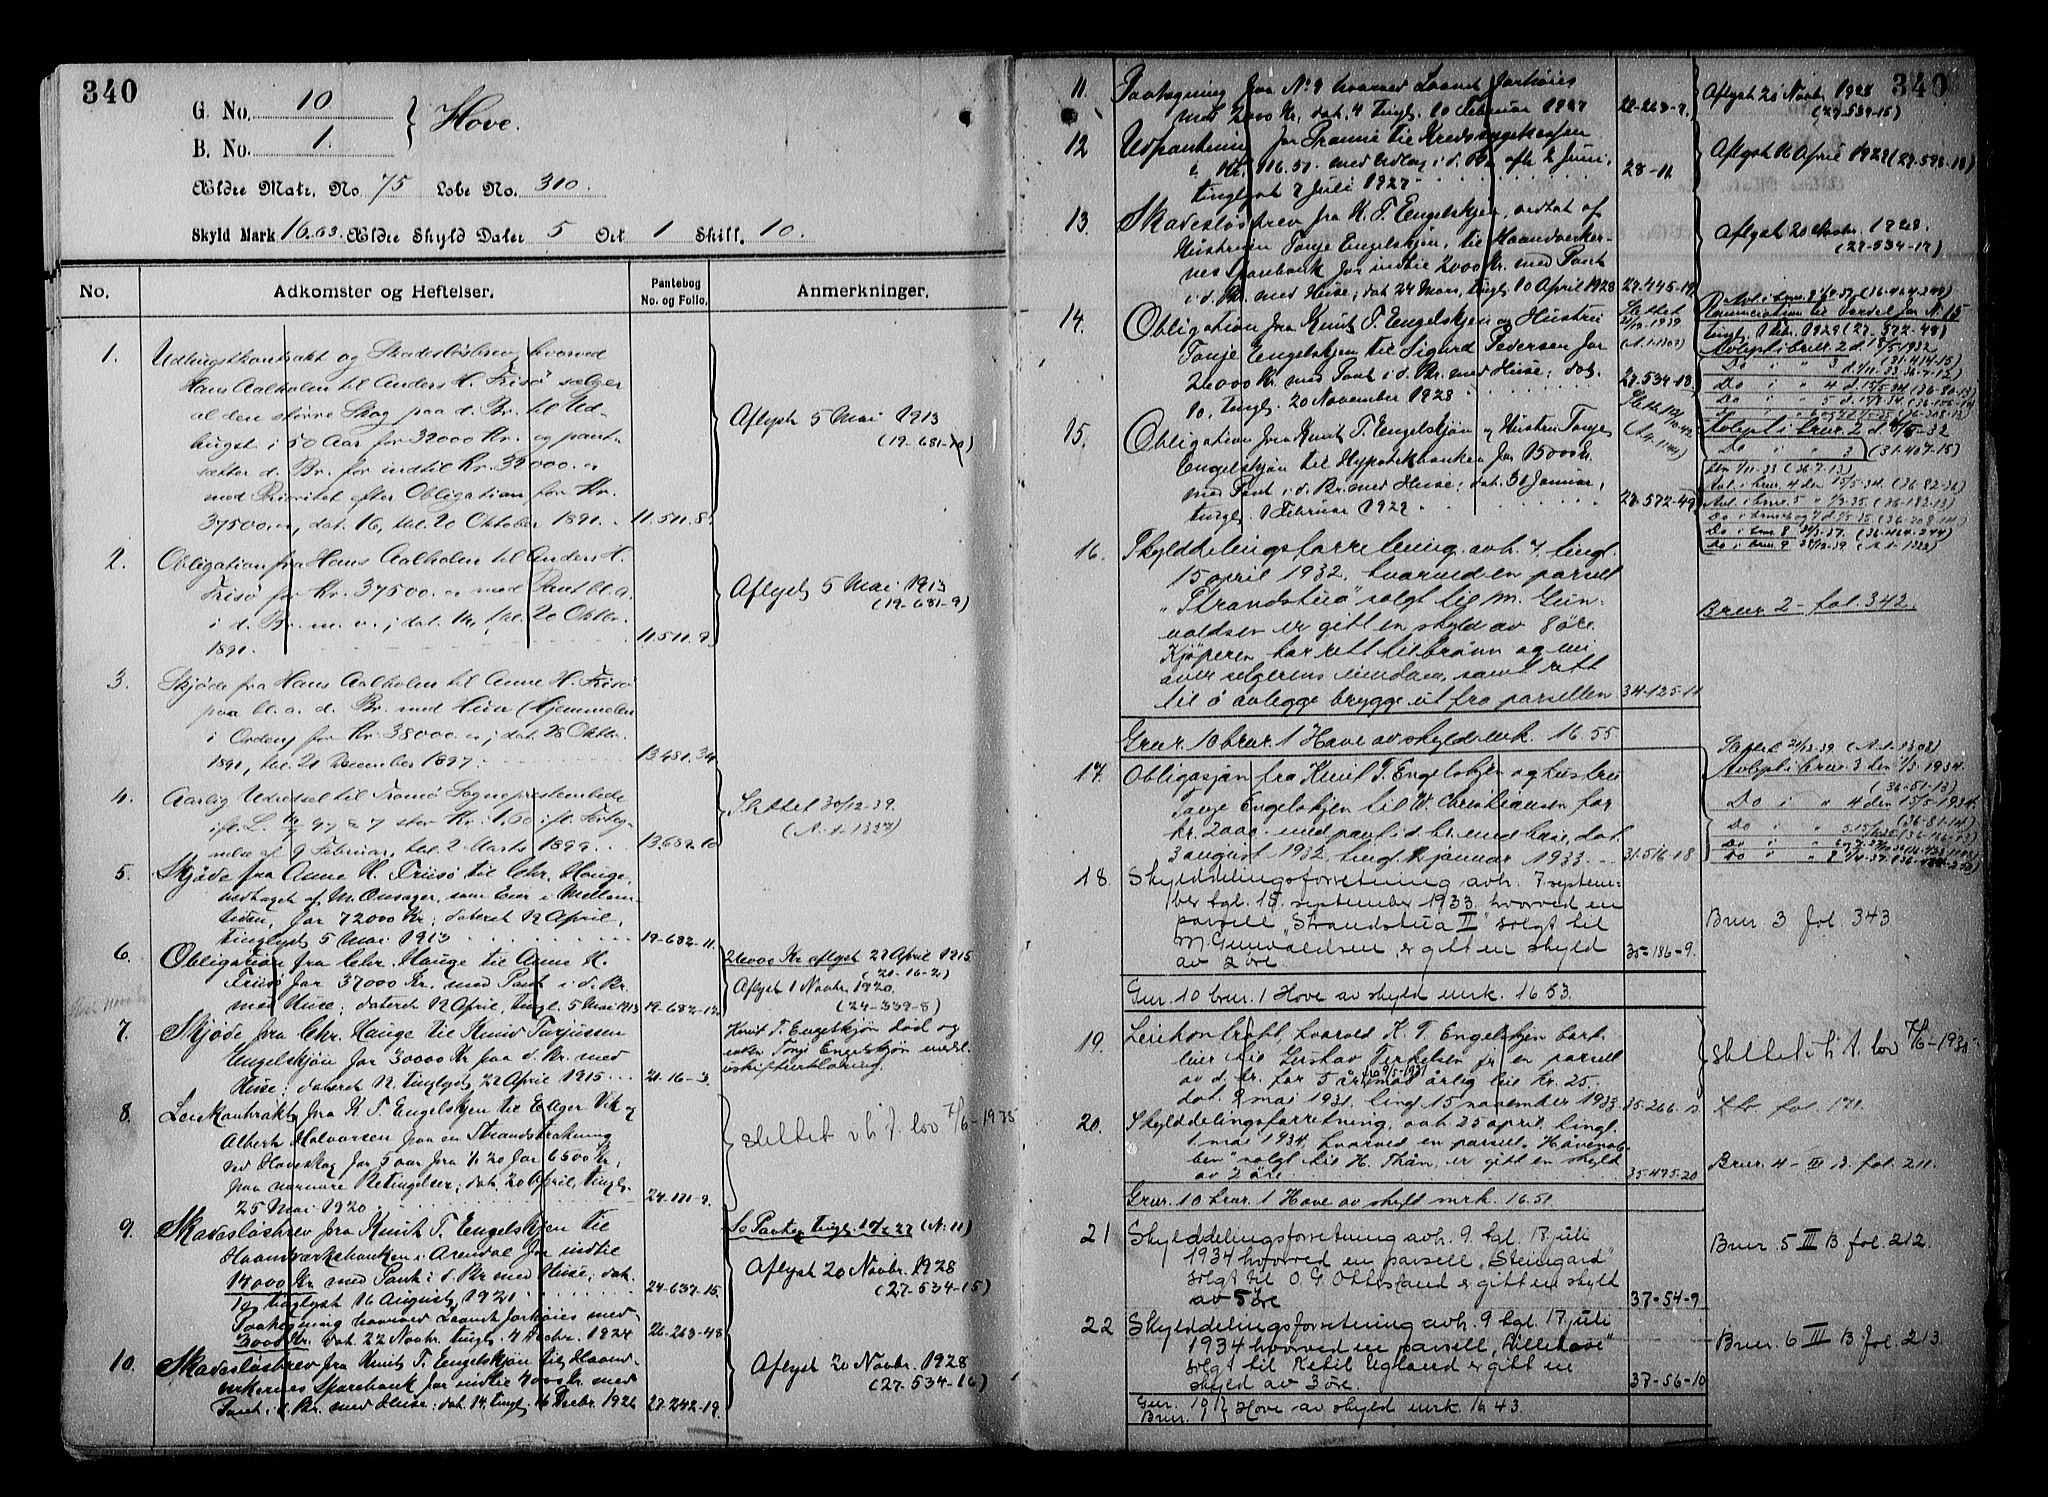 340
G. No. 10
B. No. 1.
Hove.
Ældre Matr. No. 75 Løbe No. 310.
Skyld Mark 16.63. Ældre Skyld Daler 5 Ort 1 Skill. 10.
No.
Adkomster og Heftelser.
Pantebog No. og Folio.
Anmerkninger.
1. Udhugstkontrakt og Skadesløsbrev, hvorved
Hans Aalholm til Anders H. Frisø sælger
al den større Skog paa d. Br. til Ud-
hugst i 50 Aar for 32000 Kr. og pant-
sætter d. Br. for indtil Kr.
med Prioritet efter Obligation for Kr.
37500, dat. 16, thl. 20 Oktober 1891. 11.511.8.
Aflyst 5 Mai 1913
(19-681-10)
2. Obligation fra Hans Aalholm til Anders H.
Frisø for Kr. 37500. med Pant bl. a.
i d. Br. m. v., dat. thl. 20 Oktbr.
1891. 11.511.9.
Aflyst 5 Mai 1913
(19-681-9)
3. Skjøde fra Hans Aalholm til Anne H. Frisø
paa bl. a. d. Br. med Huse (Hjemmelen
i Orden) for Kr. 38000. dat. 28 Oktbr.
1891, thl. 21 December 1897. 13.481.34
4. Aarlig Udredsel til Tromø Sogneprestembede
ifl. L. stor Kr. 1,60 ifl. Forteg-
nelse af 9 Februar, thl. 2 Marts 1899. 13.682.10
Slettet 30/12-39.
(A.1.1327)
5. Skjøde fra Anne H. Frisø til Chr. Hauge,
vedtaget af M. Onsager, som Eier i Mellem-
tiden, for 72000 Kr.; dateret 12 April,
tinglyst 5 Mai 1913 19-682-11.
6. Obligation fra Chr. Hauge til Anne H.
Frisø for 37000 Kr. med Pant i d. Br.
med Huse; dateret 12 April, tingl. 5 Mai 1913 19-682-12
26000 Kr aflyst 27 April 1915
(21-16-2)
Aflyst 1 Novbr. 1920.
(24-339-8)
7. Skjøde fra Chr. Hauge til Knud Tarjussen
Engelskjøn for 30000 Kr paa d. Br. med
Huse; dateret 12. tinglyst 22 April 1915 21-16-3.
Knut T. Engelskjøn død og
enken Tonje Engelskjøn meddl.
uskifteerklæring.
8. Leiekontrakt fra K T. Engelskjøn til Edger Vik og
Albert Halvorsen paa en Strandstrækning
ved Hoveskog for 5 aar fra 20 for 6500 Kr,
paa nærmere Betingelser; dat. 20 April, tingl.
25 Mai 1920 24-111-9.
slettet v h t. lov 7/6-1935
9. Skadesløsbrev fra Knut T. Engelskjøn til
Haandværksbanken i Arendal for indtil
17000 Kr med Pant i d. Br med Huse; dat.
tinglyst 16 August 1921 24-637-15.
Se Paateg. tingl. 10/2 27 (No 11)
Aflyst 20 Novbr. 1928
(27-534-15)
Paategning hvorved Laanet forhøies med
3000 Kr. dat. 22 Novbr. tingl. 4 Decbr. 1924 26-263-48
10. Skadesløsbrev fra Knut T. Engelskjøn til Haand-
verkernes Sparebank for indtil 4000 Kr. med
Pant i d. Br. med Huse; dat. 14. tingl. 16 Decbr. 1926 27-242-19.
Aflyst 20 Novbr. 1928
(27-534-16)
340
11. Paategning paa No 9 hvorved Laanet forhøies
med 2000 Kr, dat. 4 tingl. 10 Februar 1927
Aflyst 20 Novbr 1928
(27-534-15)
12 Udpanting for Premie til Kredssygekassen
Kr. 116.51. med Udlæg i d. Br. afh. 2 Juni,
tinglyst 7 Juli 1927. 28-11.
Aflyst 16 April 1929 (27-598-18)
13. Skadesløsbrev fra K. T. Engelskjøn, vedtat af
Hustruen Tonje Engelskjøn, til Haandverker-
nes Sparebank for indtil 2000 Kr. med Pant
i d. Br. med Huse; dat 24 Mars, tingl. 10 April 1928 27-445-19
Aflyst 20 Novbr. 1928.
(27-534-17)
14. Obligation fra Knut T. Engelskjøn og Hustru
Tonje Engelskjøn til Sigurd Pedersen for
26000 Kr. med Pant i d. Br. med Huse; dat.
10, tingl. 20 November 1928 27-534-18
Renunciation til Fordel for No 15
tingl. 1 Febr. 1929 (27-572-48)
Avløst i brur. 2 d. 1932
(31-414-15)
15. Obligation fra Knut T. Engelskjøn og Hustru Tonje
Engelskjøn til Hypotekbanken for 15000 Kr.
med Pant i d. Br. med Huse; dat. 30 Januar,
tingl. 1 Februar 1929. 27-572-49
Avløst i brur. 2 d. -32
(31-407-15)
16. Skylddelingsforretning avh. 7. tingl.
15 april 1932, hvorved en parsell
"Strandstua" solgt til M. Gun-
valdsen er gitt en skyld av 8 øre.
Kjøperen har rett til brønn og vei
over selgerens eiendom, samt rett
til å anlegge brygge ut fra parsellen 34-125-11
Brnr 2 - fol. 342.
Gnr. 10 brnr. 1 Hove av skyld mrk. 16.55
17. Obligasjon fra Knut T. Engelskjøn og hustru
Tonje Engelskjøn til W. Christiansen for
kr. 2000 - med pant i d. br. med huse, dat.
3 august 1932, tingl. januar 1933. 31-516-18
Slettet 21/12-39. (A.1.1308)
Avløst i brnr. 3 den 1/5-1934.
(36-51-13)
Do i " 4 den 15/5-1934.
(36-81-14)
18 Skylddelingsforretning avh. 7 septem-
ber tgl. 15. september 1933. hvorved en
parsell "Strandstua II" solgt til
M. Gunvaldsen, er gitt en skyld
av 2 øre. 35-186-9.
Brnr 3 fol. 343
Gnr. 10 brnr. 1 Hove av skyld mrk. 16.53.
19. Leiekontrakt, hvorved K. T. Engelskjøn bort-
leier til Gustav Terkelsen jr en parsell
av d. br. for 5 år fra 9/5-1931 mot årlig leie kr. 25.
dat. 9 mai 1931, tingl 15 november 1933 35-266-13
slettet v h t. lov 7/6-1935
20. Skylddelingsforretning, avh 25 april, tingl.
1 mai 1934, hvorved en parsell
solgt til H. Thån, er gitt en skyld
av 2 øre 35-495-20
Brnr. 4 - III B. fol. 211.
Gnr. 10 brnr. 1 Hove av skyld mrk. 16.51
21 Skylddelingsforretning avh. 9. tgl. 17. juli
1934 hvorved en parsell "Steingard"
solgt til O. G. Ottesland er gitt en skyld
av 5 øre 37-54-9
Brnr. 5 III B. fol. 212.
22 Skylddelingsforretning avh. 9 tgl. 17 juli
1934 hvorved en parsell "Lillehove"
solgt til Ketil Ugland er gitt en
skyld av 3 øre. 37-56-10
Brnr. 6 III B fol. 213.
Gnr. 10
Brnr. 1
Hove av skyld mrk. 16 43.